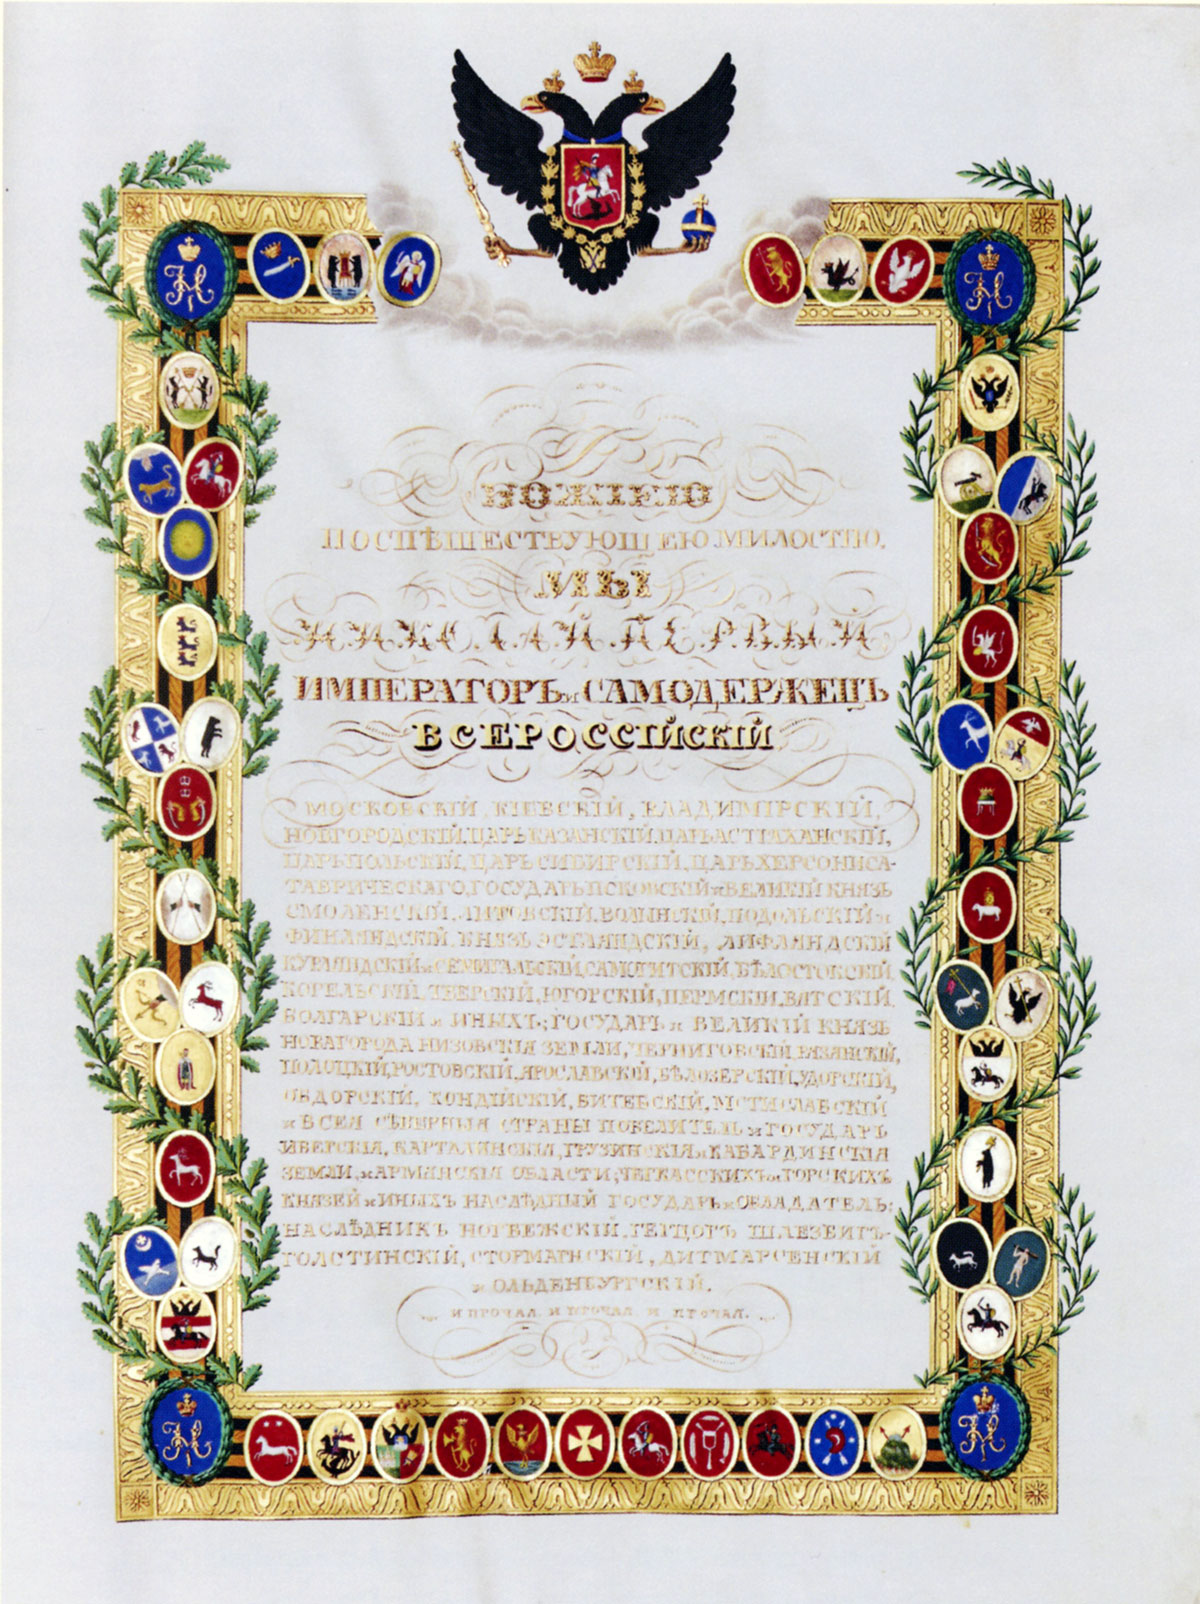 БОЖІЕЮ
ПОСПѢШЕСТВУЮЩЕЮ МИЛОСТІЮ.
МЫ
НИКОЛАЙ ПЕРВЫЙ
ИМПЕРАТОРЪ и САМОДЕРЖЕЦЪ
ВСЕРОССІЙСКІЙ
МОСКОВСКІЙ, КІЕВСКІЙ, ВЛАДИМІРСКІЙ,
НОВГОРОДСКІЙ, ЦАРЬ КАЗАНСКІЙ, ЦАРЬ АСТРАХАНСКІЙ,
ЦАРЬ ПОЛЬСКІЙ, ЦАРЬ СИБИРСКІЙ, ЦАРЬ ХЕРСОНИСА-
ТАВРИЧЕСКАГО, ГОСУДАРЬ ПСКОВСКІЙ и ВЕЛИКІЙ КНЯЗЬ
СМОЛЕНСКІЙ, ЛИТОВСКІЙ, ВОЛЫНСКІЙ, ПОДОЛЬСКІЙ и
ФИНЛЯНДСКІЙ, КНЯЗЬ ЭСТЛЯНДСКІЙ, ЛИФЛЯНДСКІЙ
КУРЛЯНДСКІЙ и СЕМИГАЛЬСКІЙ, САМОГИТСКІЙ, БѢЛОСТОКСКІЙ,
КОРЕЛЬСКІЙ, ТВЕРСКІЙ, ЮГОРСКІЙ, ПЕРМСКІЙ, ВЯТСКІЙ,
БОЛГАРСКІЙ и ИНЫХЪ; ГОСУДАРЬ и ВЕЛИКІЙ КНЯЗЬ
НОВАГОРОДА НИЗОВСКІЯ ЗЕМЛИ, ЧЕРНИГОВСКІЙ, РЯЗАНСКІЙ,
ПОЛОЦКІЙ, РОСТОВСКІЙ, ЯРОСЛАВСКІЙ, БѢЛОЗЕРСКІЙ, УДОРСКІЙ,
ОБДОРСКІЙ, КОНДІЙСКІЙ, ВИТЕБСКІЙ, МСТИСЛАВСКІЙ
и ВСЕЯ СѢВЕРНЫЯ СТРАНЫ ПОВЕЛИТЕЛЬ и ГОСУДАРЬ
ИВЕРСКІЯ, КАРТАЛИНСКІЯ, ГРУЗИНСКІЯ и КАБАРДИНСКІЯ
ЗЕМЛИ, и АРМЯНСКІЯ ОБЛАСТИ; ЧЕРКАССКИХЪ и ГОРСКИХЪ
КНЯЗЕЙ и ИНЫХЪ НАСЛѢДНЫЙ ГОСУДАРЬ и ОБЛАДАТЕЛЬ;
НАСЛѢДНИКЪ НОРВЕЖСКІЙ, ГЕРЦОГЪ ШЛЕЗВИГЪ-
ГОЛСТИНСКІЙ, СТОРМАРНСКІЙ, ДИТМАРСЕНСКІЙ
и ОЛЬДЕНБУРГСКІЙ.
И ПРОЧАЯ. И ПРОЧАЯ. И ПРОЧАЯ.